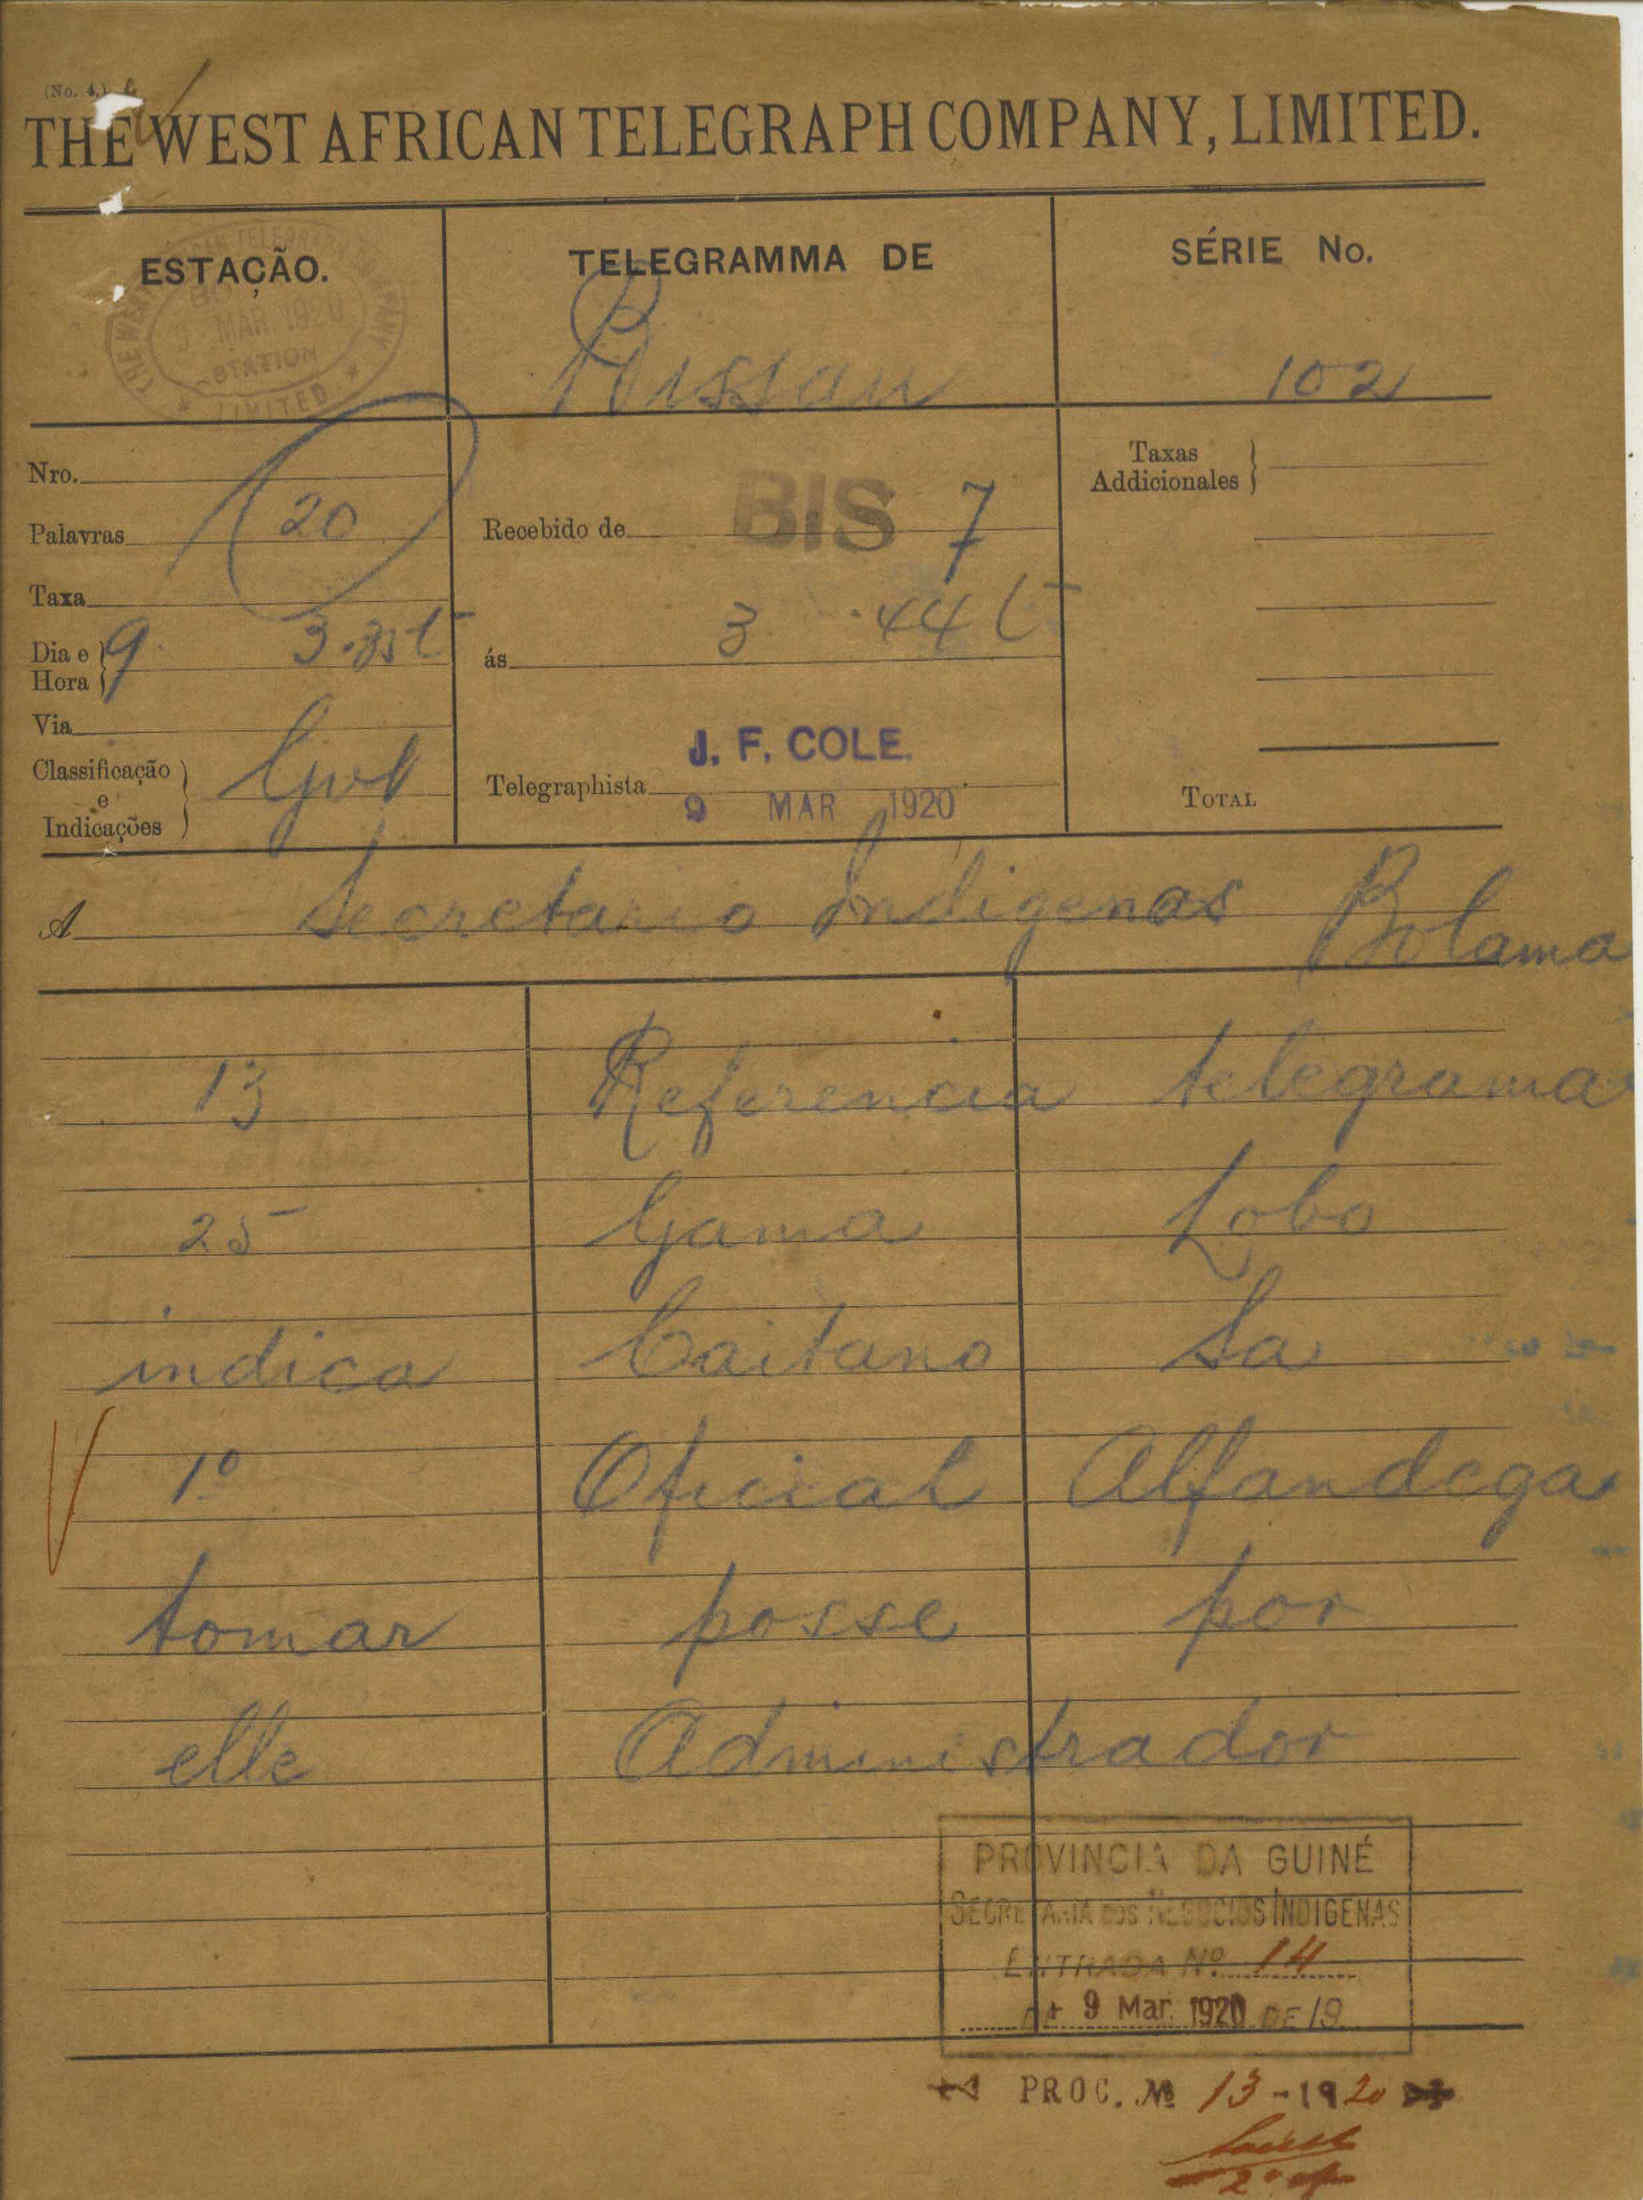 (No. 4.)
THE WEST AFRICAN TELEGRAPH COMPANY, LIMITED.
ESTAÇÃO.
TELEGRAMMA DE
SÉRIE No.
MAR 1920
STATION
LIMITED
Bissau
102
Nro.
Palavras 20
Taxa
Dia e Hora 9 3.35 t
Via
Classificação e Indicações Govt
Recebido de BIS 7
ás 3 .44 t
Telegraphista J. F. COLE.
9 MAR 1920
Taxas Addicionales
TOTAL
A Secretario Indigenas Bolama
13 Referencia telegrama
25 Gama Lobo
indica Caitano Sa
1º Oficial Alfandega
tomar posse por
elle Administrador
PROVINCIA DA GUINÉ
SECRETARIA DOS NEGOCIOS INDIGENAS
ENTRADA Nº 14
9 Mar. 1920 DE 19
PROC. Nº 13-1920